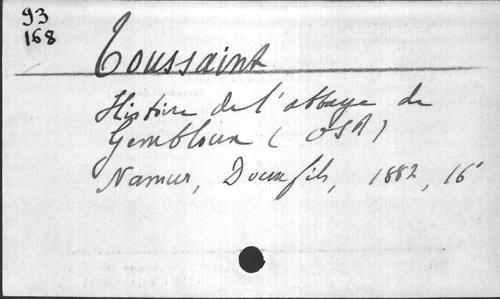 93
168
Toussaint
Histoire de l'abbaye de
Gembloux (OSB)
Namur, Doux fils, 1882, 16°